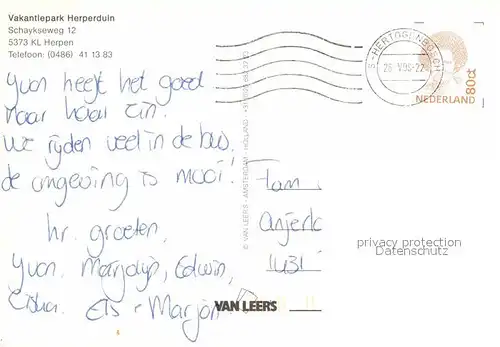 Vakantiepark Herperduin
Schaykseweg 12
5373 KL Herpen
Telefoon: (0486) 41 13 83
's-HERTOGENBOSCH
80ct
NEDERLAND
Yvon heeft het goed
naar haar zin.
We rijden veel in de bus.
de omgeving is mooi!
hr. groeten,
Yvon, Marjolijn, Edwin,
Els - Marjon
Fam.
Anjerl
© VAN LEER'S - AMSTERDAM - HOLLAND
privacy protection
Datenschutz
VAN LEER'S